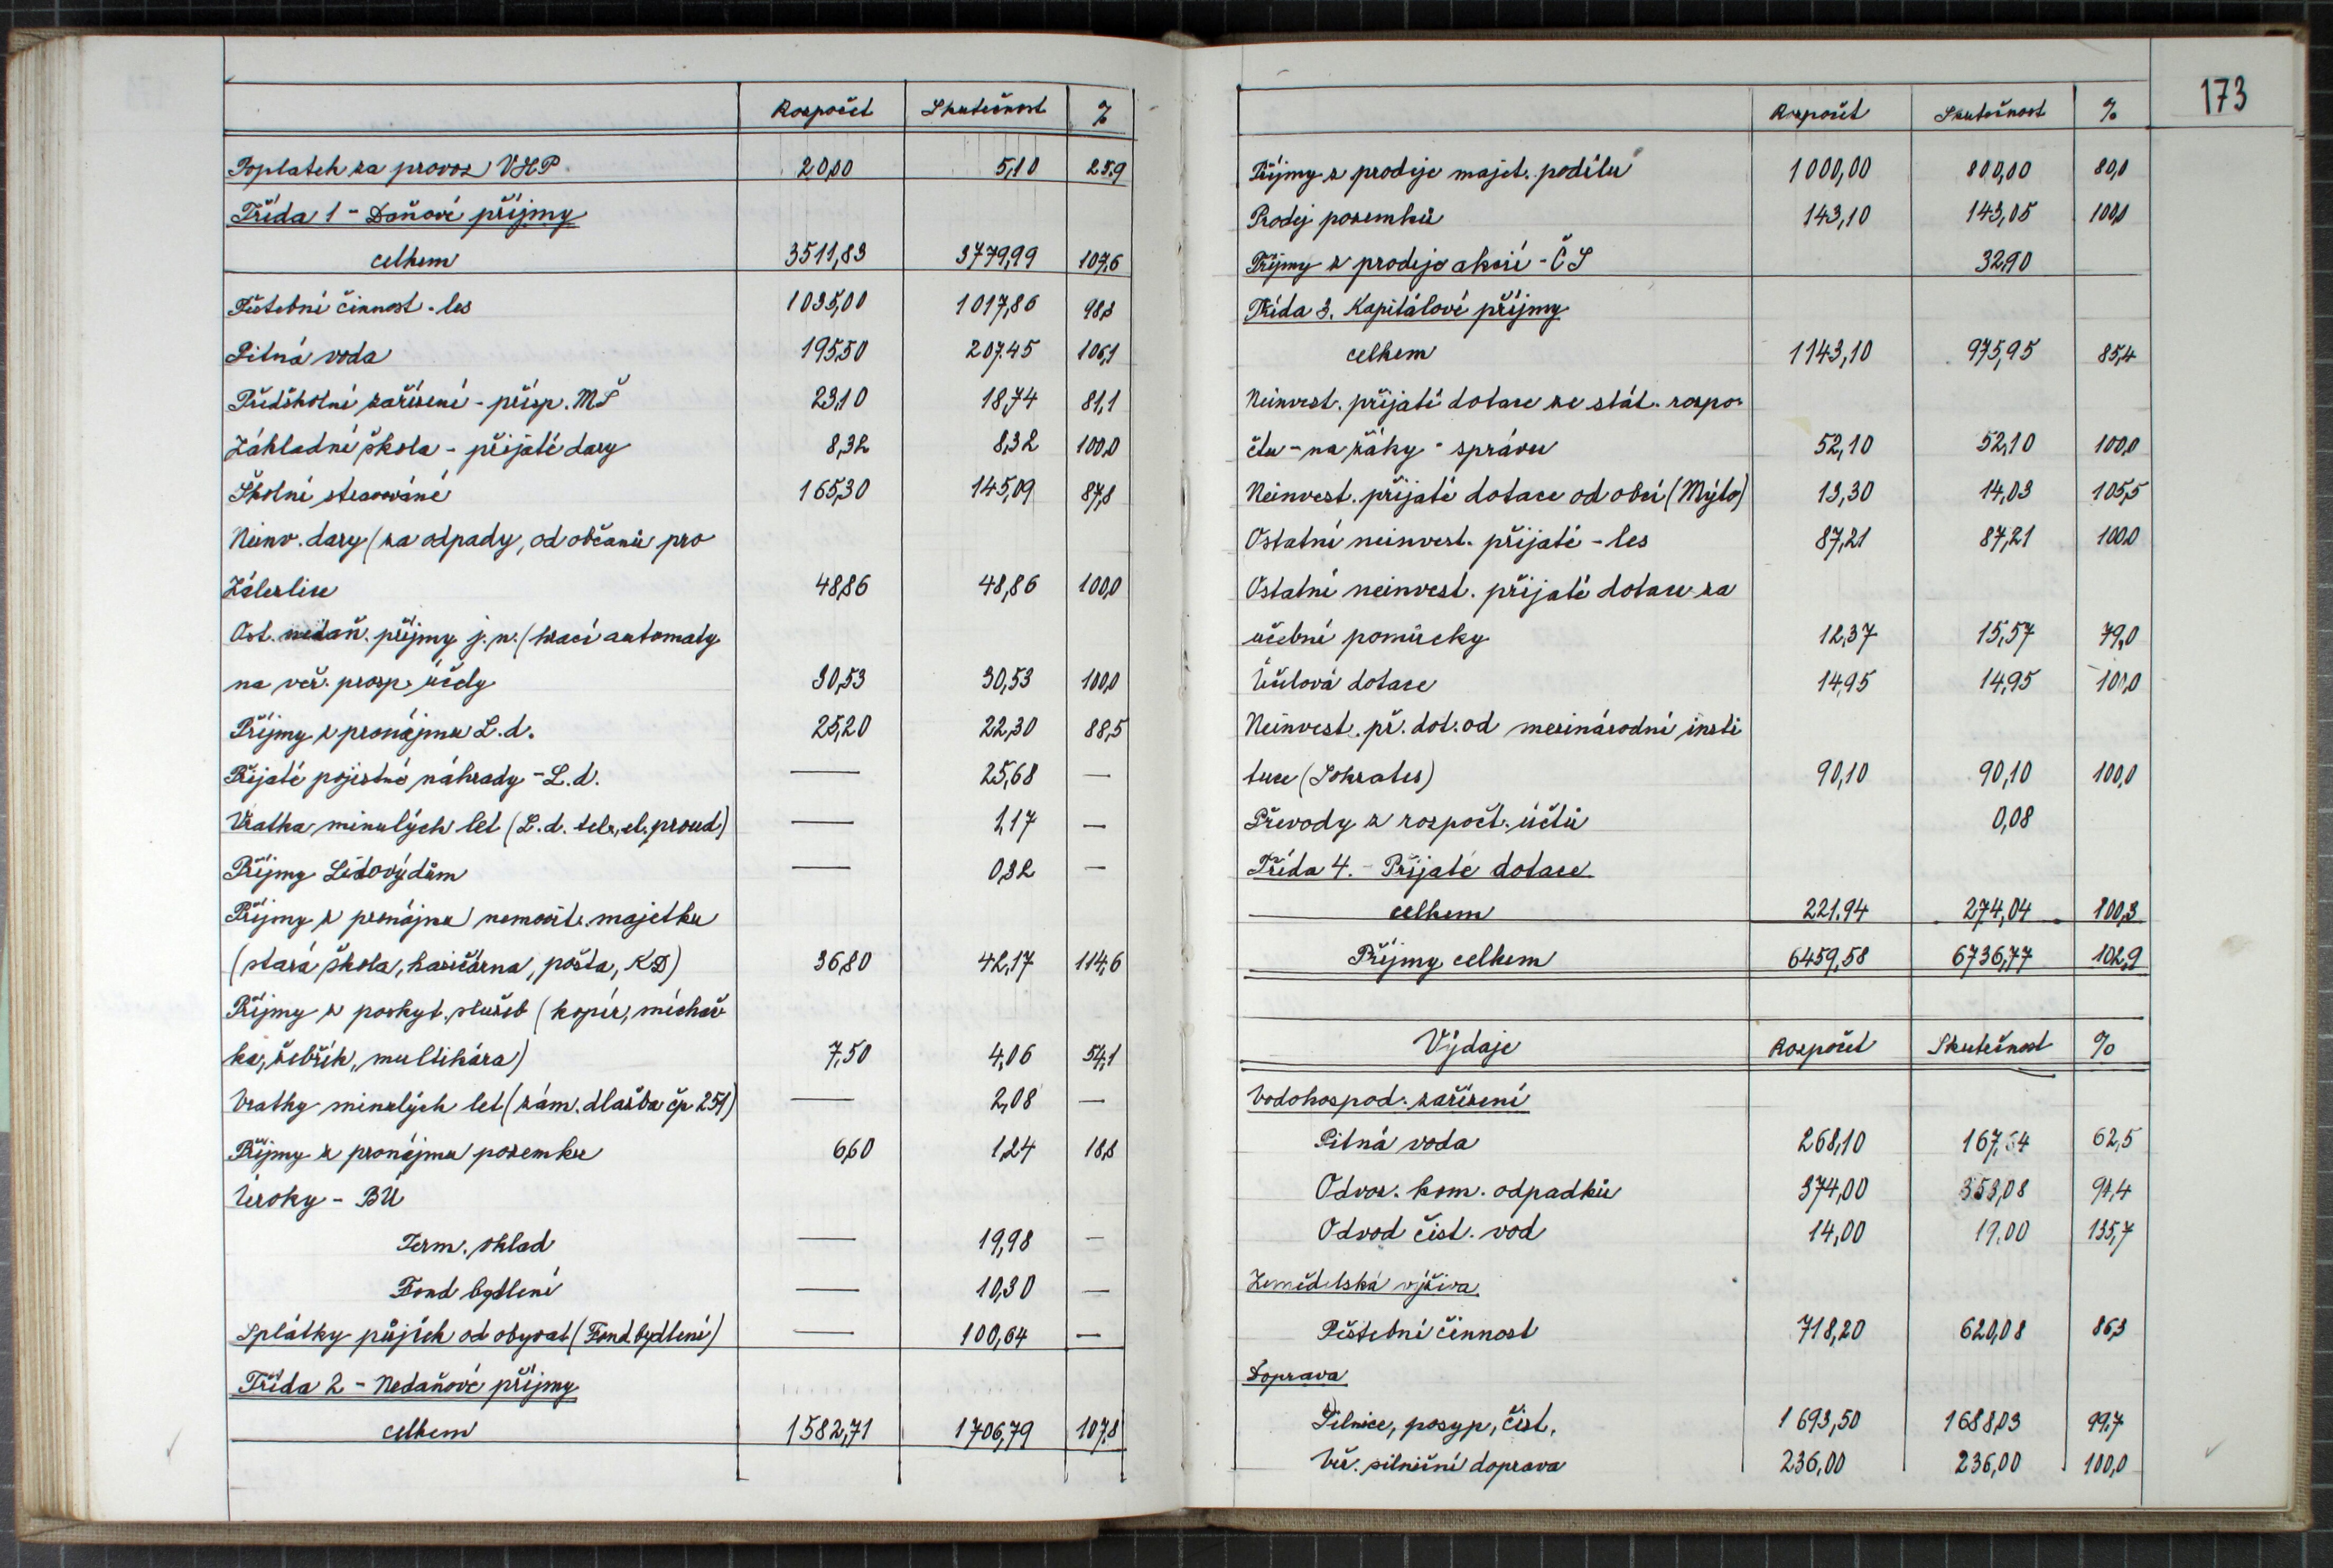 Rozpočet Skutečnost %
Poplatek za provoz VHP 20,00 5,10 25,9
Třída 1 - Daňové příjmy
celkem 3511,83 3779,99 107,6
Pěstební činnost - les 1035,00 1017,86 98,3
Pitná voda 195,50 207,45 106,1
Předškolní zařízení - přísp. MŠ 23,10 18,74 81,1
Základní škola - přijaté dary 8,32 8,32 100,0
Školní stravování 165,30 145,09 87,8
Neinv. dary (za odpady, od občanů pro
Záletlice 48,86 48,86 100,0
Ost. nedaň. příjmy j. n. (hrací automaty
na veř. prosp. účely 30,53 30,53 100,0
Příjmy z pronájmu L. d. 25,20 22,30 88,5
Přijaté pojistné náhrady - L. d. — 25,68 —
Vratka minulých let (L. d. tel., el. proud) — 1,17 —
Příjmy Lidový dům — 0,32 —
Příjmy z pronájmu nemovit. majetku
(stará škola, hasičárna, pošta, KD) 36,80 42,17 114,6
Příjmy z poskyt. služeb (kopír, míchač
ka, žebřík, multikára) 7,50 4,06 54,1
Vratky minulých let (zám. dlažba čp 251) — 2,08 —
Příjmy z pronájmu pozemku 6,60 1,24 18,8
Úroky - BÚ
Term. vklad — 19,98 —
Fond bydlení — 10,30 —
Splátky půjček od obyvat. (Fond bydlení) — 100,64 —
Třída 2 - Nedaňové příjmy
celkem 1582,71 1706,79 107,8
173
Rozpočet Skutečnost %
Příjmy z prodeje majet. podílu 1000,00 800,00 80,0
Prodej pozemků 143,10 143,05 100,0
Příjmy z prodeje akcií - ČS 32,90
Třída 3. Kapitálové příjmy
celkem 1143,10 975,95 85,4
Neinvest. přijaté dotace ze stát. rozpo-
čtu - na žáky - správu 52,10 52,10 100,0
Neinvest. přijaté dotace od obcí (Mýto) 13,30 14,03 105,5
Ostatní neinvest. přijaté - les 87,21 87,21 100,0
Ostatní neinvest. přijaté dotace za
učební pomůcky 12,37 15,57 79,0
Účelová dotace 14,95 14,95 100,0
Neinvest. př. dot. od mezinárodní insti
tuce (Sokrates) 90,10 90,10 100,0
Převody z rozpočt. účtů 0,08
Třída 4. - Přijaté dotace
celkem 221.94 274,04 100,3
Příjmy celkem 6459,58 6736,77 102,9
Výdaje Rozpočet Skutečnost %
Vodohospod. zařízení
Pitná voda 268,10 167,64 62,5
Odvoz. kom. odpadků 374,00 353,08 94,4
Odvod čist. vod 14,00 19,00 135,7
Zemědělská výživa
Pěstební činnost 718,20 620,08 86,3
Doprava
Silnice, posyp, čist. 1 693,50 1688,03 99,7
Veř. silniční doprava 236,00 236,00 100,0